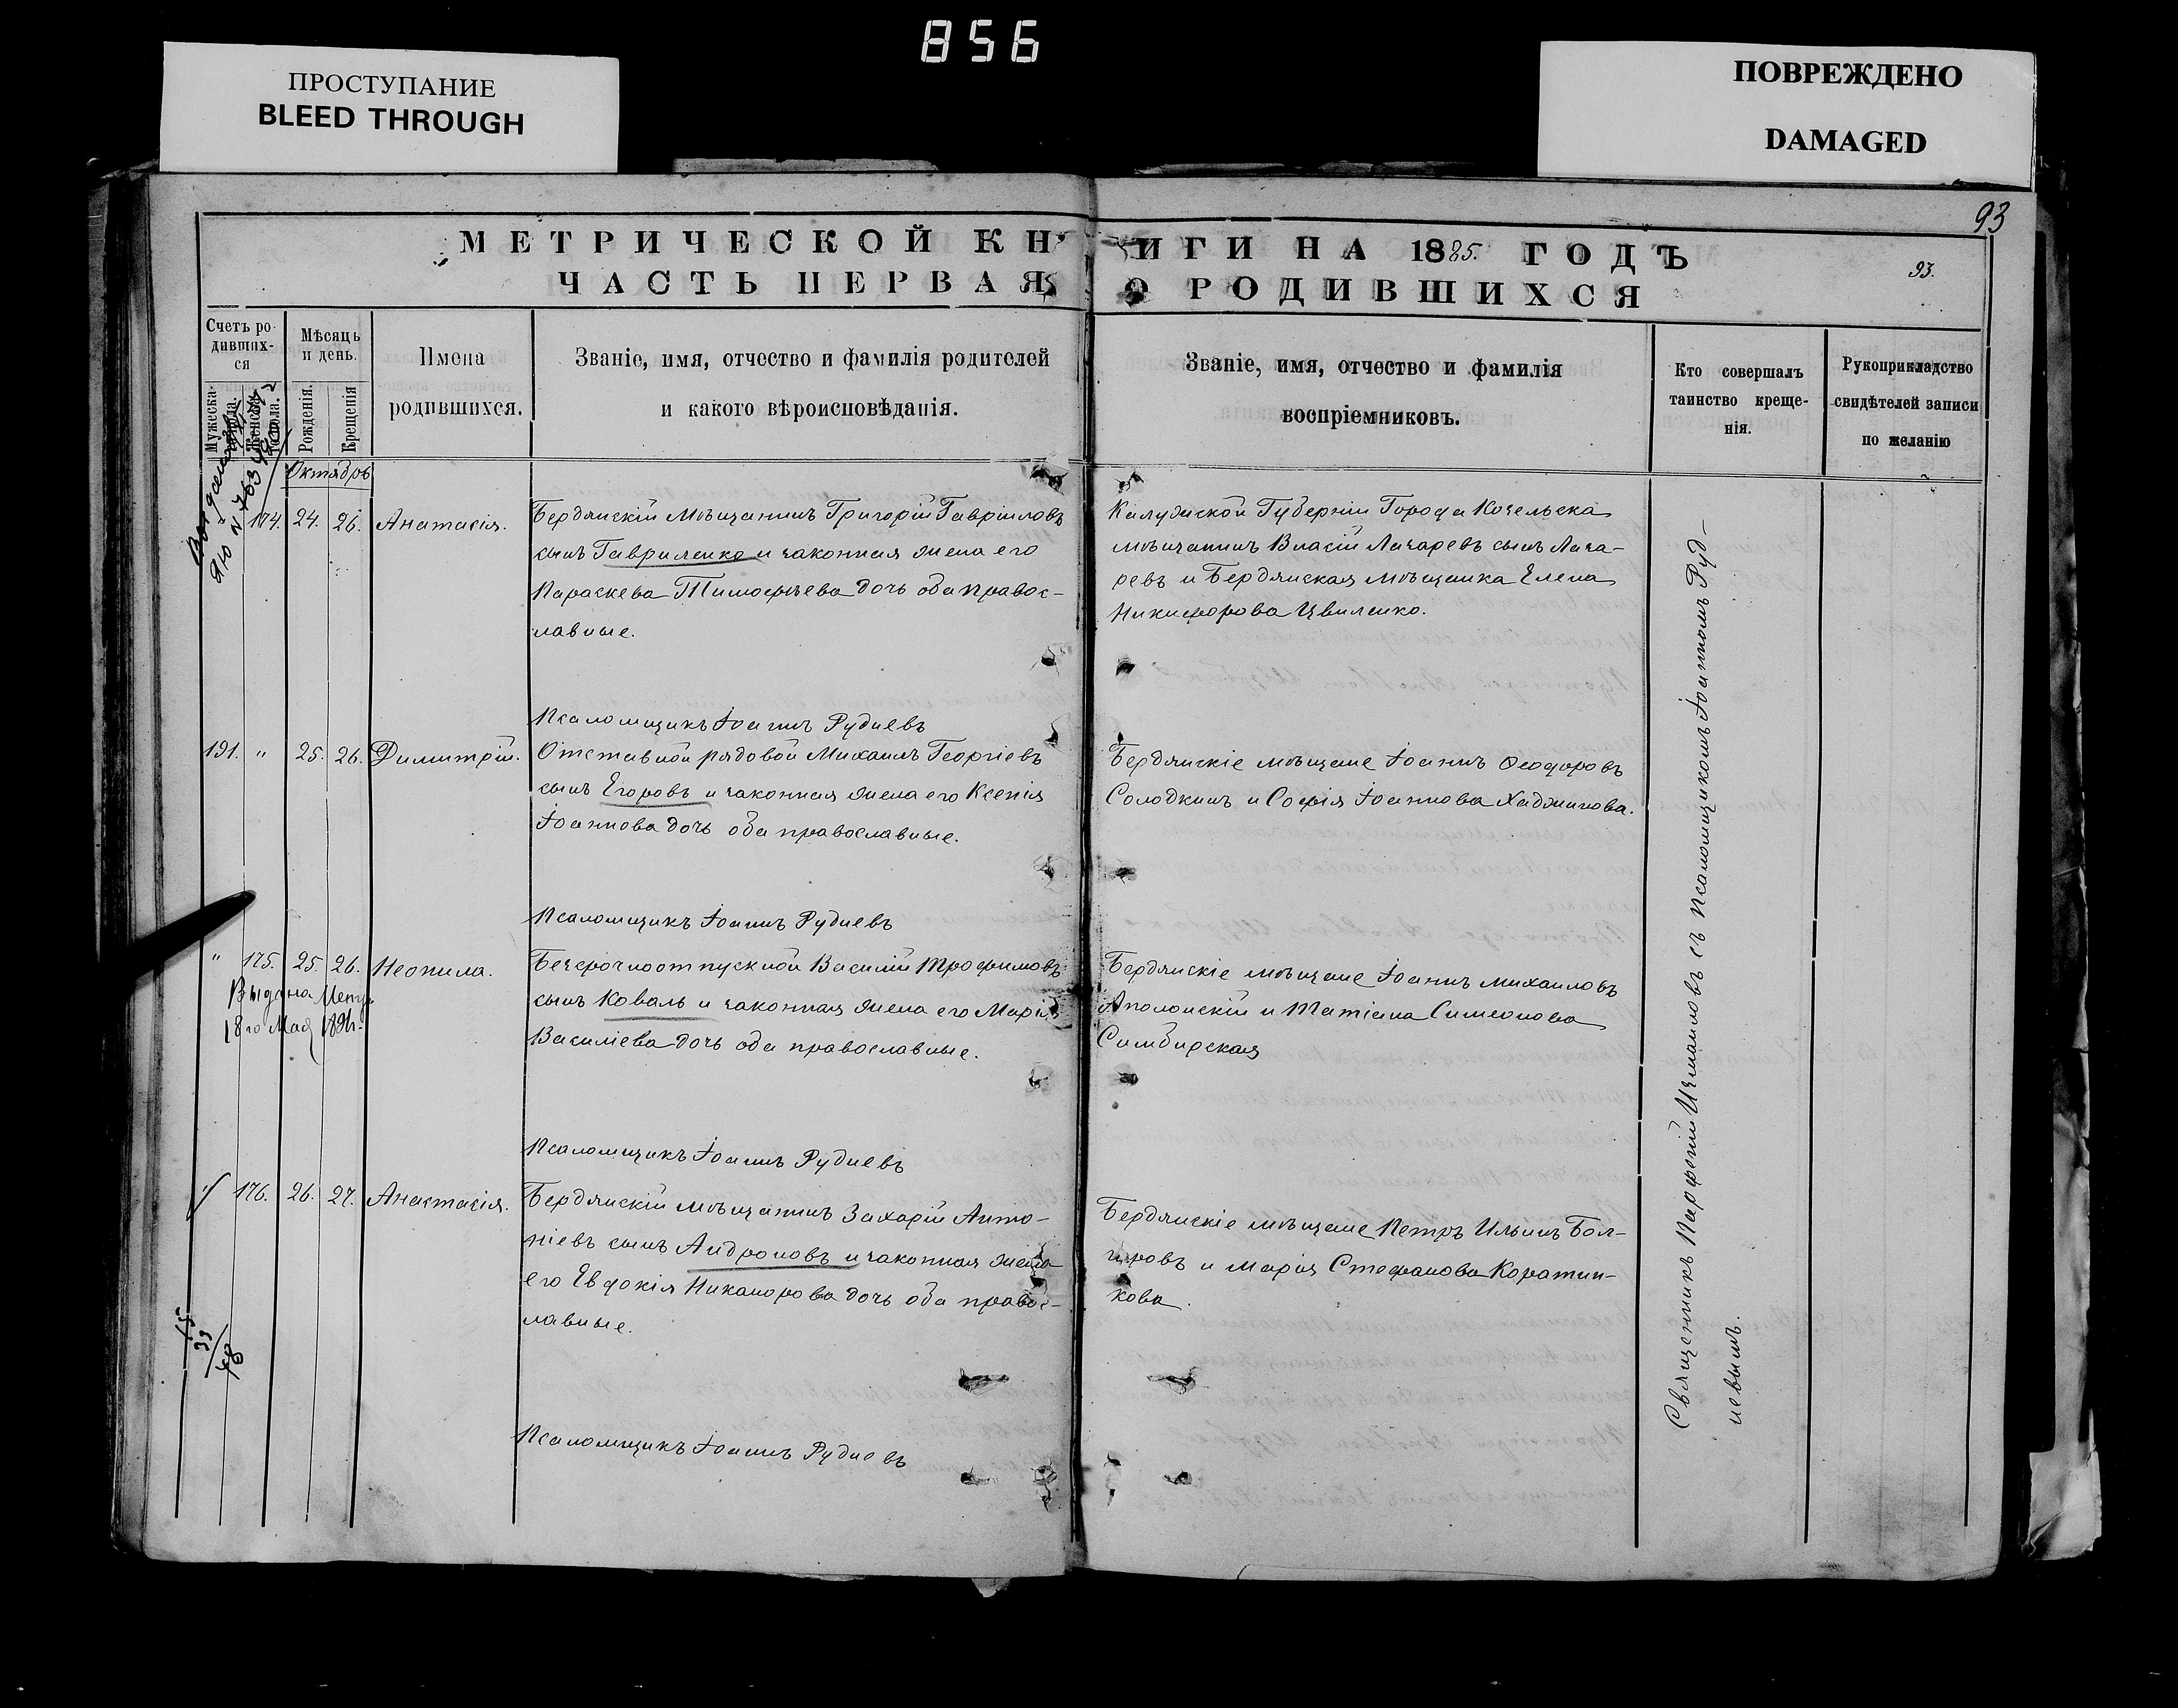 856
ПРОСТУПАНИЕ
BLEED THROUGH
ПОВРЕЖДЕНО
DAMAGED
93
МЕТРИЧЕСКОЙ КНИГИ НА 1885 ГОДЪ
93.
ЧАСТЬ ПЕРВАЯ О РОДИВШИХСЯ
Счетъ ро-
дивших-
ся
Мѣсяцъ
и день.
Имена
родившихся.
Званіе, имя, отчество и фамилія родителей
и какого вѣроисповѣданія.
Званіе, имя, отчество и фамилія
воспріемниковъ.
Кто совершалъ
таинство креще-
нія.
Рукоприкладство
свидѣтелей записи
по желанію
Мужеска-
Женска-
Рожденія.
Крещенія
Октябрь
174. 24. 26. Анатасія.
Бердянскій мѣщанинъ Григорій Гавріиловъ
сынъ Гавриленко и законная жена его
Параскева Тимофѣева дочь оба правос-
лавные.
Калужской Губерніи Города Козельска
мѣщанинъ Власій Лазаревъ сынъ Лаза-
ревъ и Бердянская мѣщанка Елена
Никифорова Цвиленко.
Псаломщикъ Іоаннъ Рудневъ
191. " 25. 26. Димитрій.
Отставной рядовой Михаилъ Георгіевъ
сынъ Егоровъ и законная жена его Ксенія
Іоаннова дочь оба православные.
Бердянскіе мѣщане Іоаннъ Ѳеодоровъ
Солодкинъ и Софія Іоаннова Хаджинова.
Псаломщикъ Іоаннъ Рудневъ
" 175. 25. 26. Неонила.
Выдана Метр.
18го Мая
Безсрочноотпускной Василій Трофимовъ
сынъ Коваль и законная жена его Марія
Василіева дочь оба православные.
Бердянскіе мѣщане Іоаннъ Михаиловъ
Аполонскій и Татіана Симеонова
Симбирская
Псаломщикъ Іоаннъ Рудневъ
" 176. 26. 27. Анастасія.
Бердянскій мѣщанинъ Захарій Анто-
ніевъ сынъ Андроновъ и законная жена
его Евдокія Никанорова дочь оба правос-
лавные.
Бердянскіе мѣщане Петръ Ильинъ Бол-
гаровъ и Марія Стефанова Коратин-
кова.
Псаломщикъ Іоаннъ Рудневъ
15
33
48
Священникъ Парфеній Измаиловъ съ псаломщикомъ Іоанномъ Руд-
невымъ.